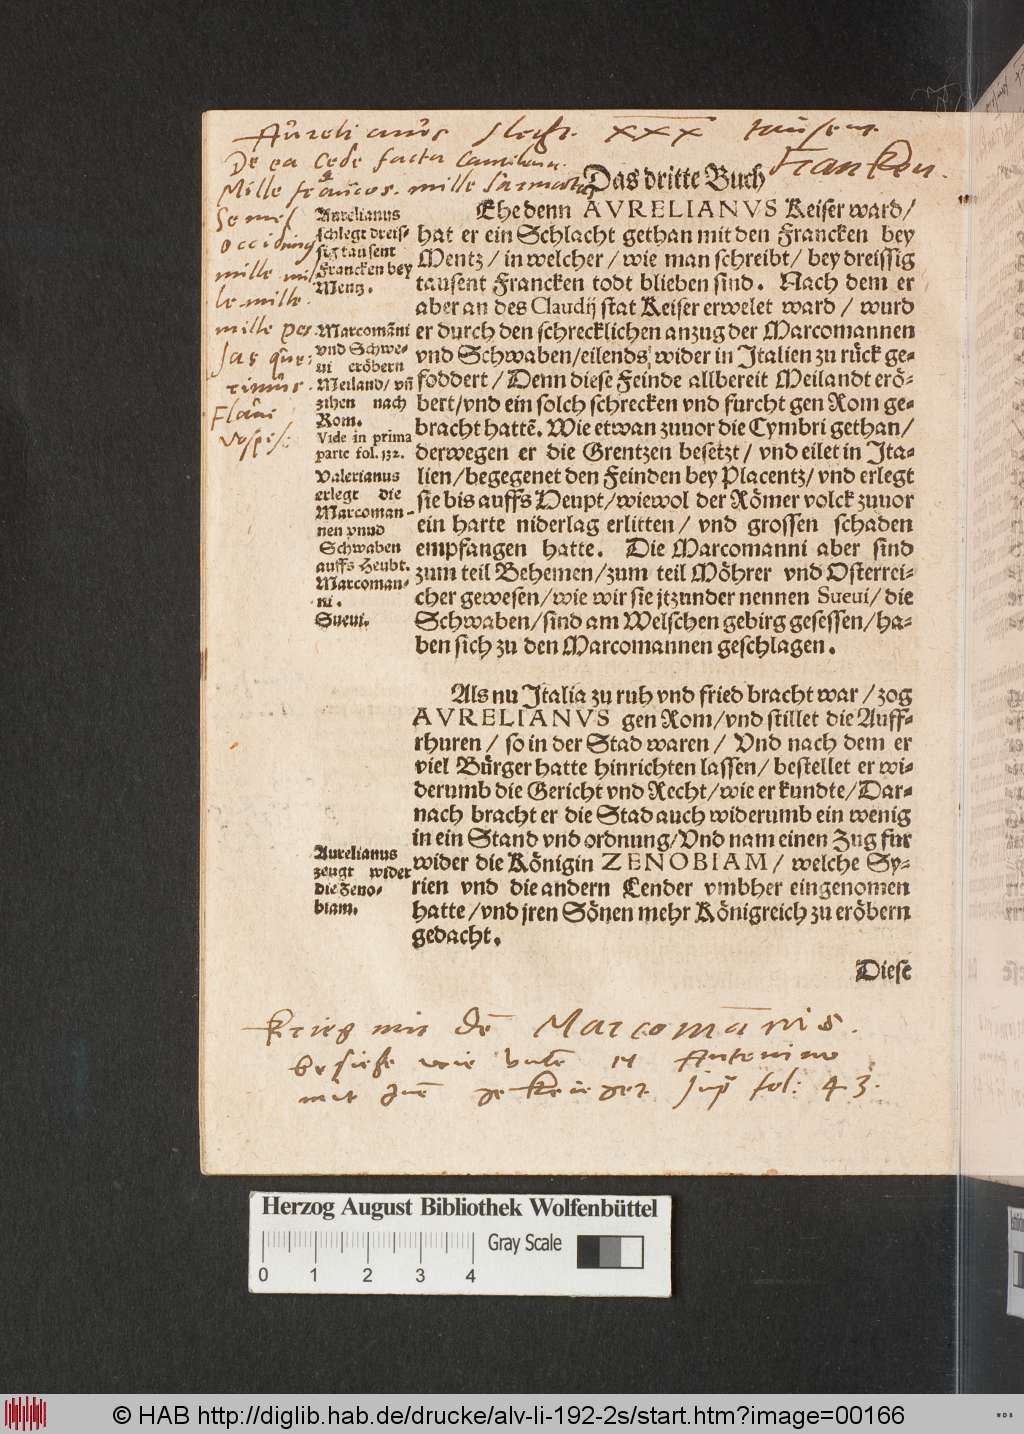 Aurelianus schlegt XXX tausent
Franken.
De ea cede facta Cantilena.
Mille francos. mille Sarmatas
Semel
occidimus
mille mil
le mille.
mille per
sas quae
rimus.
Flavi
Vopis:
Das dritte Buch
Ehe denn AVRELIANVS Keiser ward/
hat er ein Schlacht gethan mit den Francken bey
Mentz/ in welcher/ wie man schreibt/ bey dreissig
tausent Francken todt blieben sind. Nach dem er
aber an des Claudij stat Keiser erwelet ward/ wurd
er durch den schrecklichen anzug der Marcomannen
vnd Schwaben/eilends wider in Italien zu rück ge-
foddert/ Denn diese Feinde allbereit Meilandt erö-
bert/vnd ein solch schrecken vnd furcht gen Rom ge-
bracht hattē. Wie etwan zuuor die Cymbri gethan/
derwegen er die Grentzen besetzt/ vnd eilet in Ita-
lien/begegenet den Feinden bey Placentz/vnd erlegt
sie bis auffs Heupt/wiewol der Römer volck zuuor
ein harte niderlag erlitten/ vnd grossen schaden
empfangen hatte. Die Marcomanni aber sind
zum teil Behemen/zum teil Möhrer vnd Osterrei-
cher gewesen/wie wir sie jtzunder nennen Sueui/ die
Schwaben/sind am Welschen gebirg gesessen/ha-
ben sich zu den Marcomannen geschlagen.
Aurelianus
schlegt dreis-
sig tausent
Francken bey
Mentz.
Marcomāni
vnd Schwe-
ui eröbern
Meiland/ vñ
zihen nach
Rom.
Vide in prima
parte fol. 132.
Valerianus
erlegt die
Marcoman-
nen vnnd
Schwaben
auffs Heubt.
Marcoman-
ni.
Sueui.
Als nu Italia zu ruh vnd fried bracht war/zog
AVRELIANVS gen Rom/vnd stillet die Auff-
rhuren/ so in der Stad waren/ Vnd nach dem er
viel Bürger hatte hinrichten lassen/ bestellet er wi-
derumb die Gericht vnd Recht/wie er kundte/Dar-
nach bracht er die Stad auch widerumb ein wenig
in ein Stand vnd ordnung/Vnd nam einen Zug fur
wider die Königin ZENOBIAM/ welche Sy-
rien vnd die andern Lender vmbher eingenomen
hatte/vnd jren Sönen mehr Königreich zu eröbern
gedacht.
Aurelianus
zeugt wider
die Zeno-
biam.
Diese
Krieg mit dē Marcomānis.
besiehe wie
Antonino
mit fol: 43.
Herzog August Bibliothek Wolfenbüttel
Gray Scale
0 1 2 3 4
© HAB http://diglib.hab.de/drucke/alv-li-192-2s/start.htm?image=00166